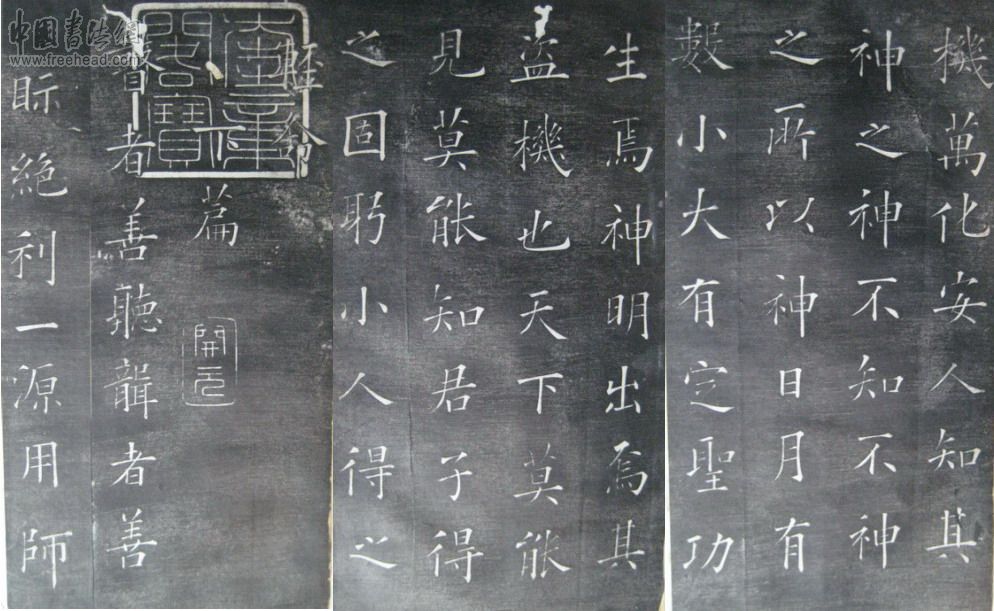 機萬化安人知其
神之神不知不神
之所以神日月有
數小大有定聖功
生焉神明出焉其
盜機也天下莫能
見莫能知君子得
之固躬小人得之
輕命
下篇
開元
奎章閣寶
瞽者善聽聾者善
眎絕利一源用師
中國書法網
www.freehead.com